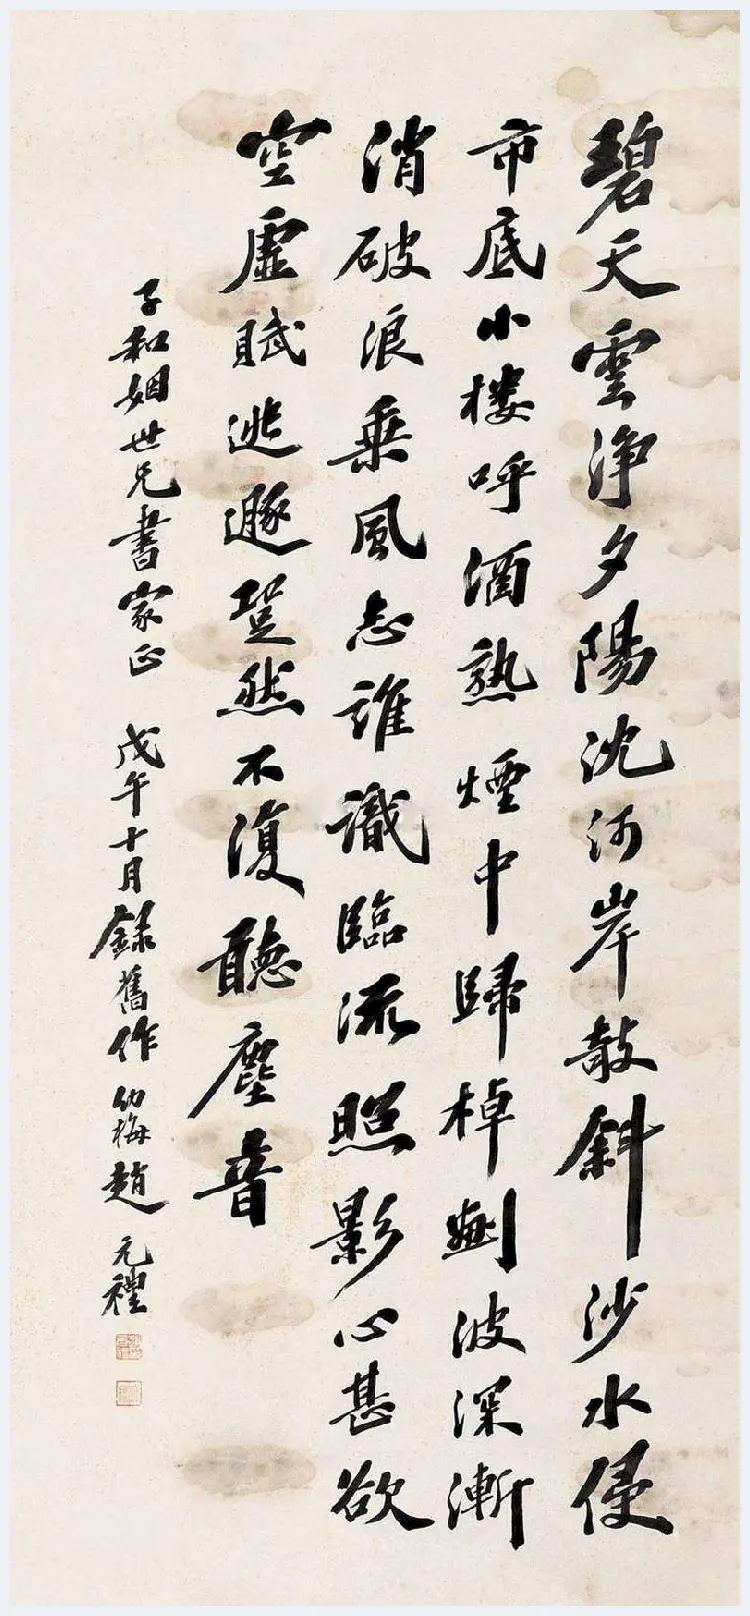 碧天雲淨夕陽沈河岸敧斜沙水侵
市底小樓呼酒熟煙中歸棹劃波深漸
消破浪乘風志誰識臨流照影心甚欲
空虛賦逃遯跫然不復聽塵音
子和姻世兄書家正 戊午十月録舊作 幼梅趙元禮